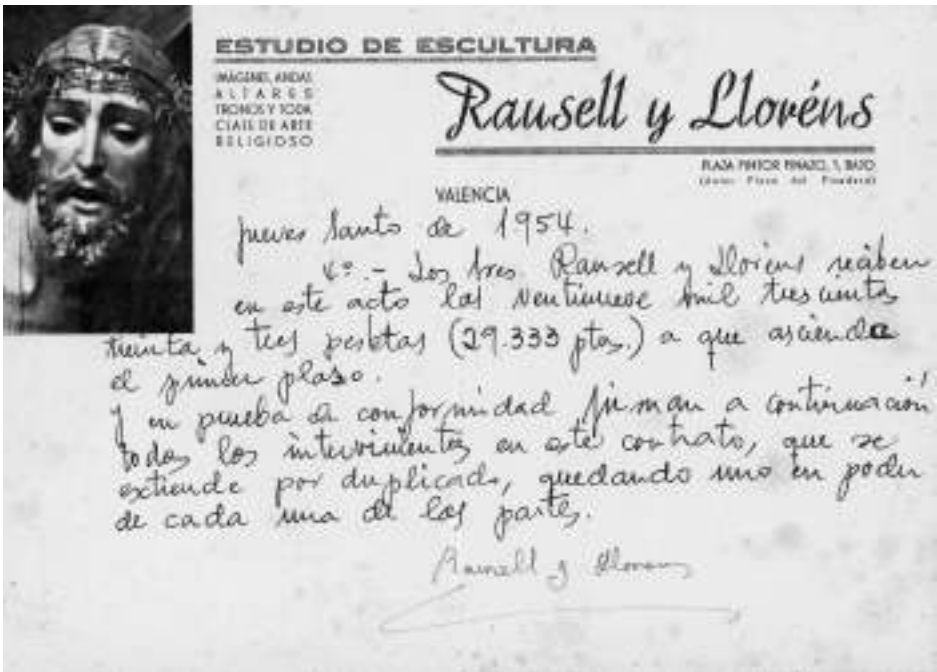 ESTUDIO DE ESCULTURA
IMÁGENES, ANDAS
ALTARES
TRONOS Y TODA
CLASE DE ARTE
RELIGIOSO
Rausell y Lloréns
PLAZA PINTOR PINAZO, 1, BAJO
(Antes Plaza del Picadero)
VALENCIA
jueves Santo de 1954.
4º.- Los tres Rausell y Llorens reciben
en este acto las ventinueve mil trescientas
treinta y tres pesetas (29.333 ptas.) a que asciende
el primer plazo.
Y en prueba de conformidad firman a continuación
todos los intervinientes en este contrato, que se
extiende por duplicado, quedando uno en poder
de cada una de las partes.
Rausell y Llorens